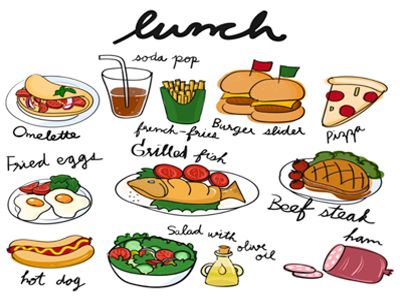 lunch
soda pop
Omelette
french-fries
Burger slider
pizza
Fried eggs
Grilled fish
Beef steak
hot dog
Salad with
olive
oil
ham